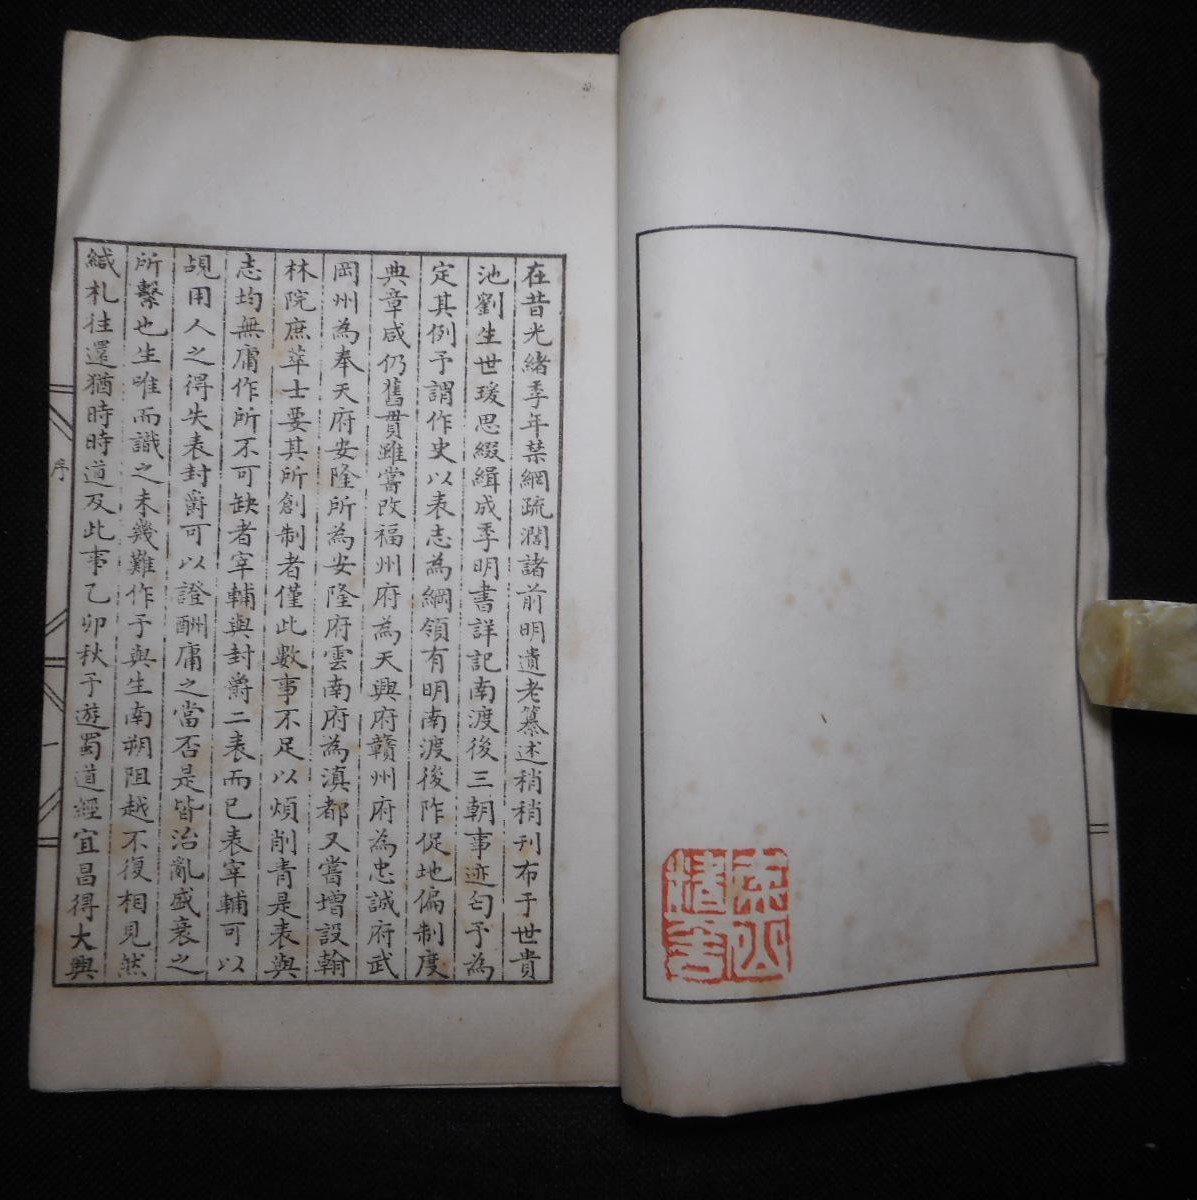 在昔光緒季年禁網疏濶諸前明遺老纂述稍稍刊布于世貴
池劉生世瑗思綴緝成季明書詳記南渡後三朝事迹匄予為
定其例予謂作史以表志為綱領有明南渡後阼促地偏制度
典章咸仍舊貫雖嘗改福州府為天興府贛州府為忠誠府武
岡州為奉天府安隆所為安隆府雲南府為滇都又嘗增設翰
林院庶萃士要其所創制者僅此數事不足以煩削青是表與
志均無庸作所不可缺者宰輔與封爵二表而已表宰輔可以
覘用人之得失表封爵可以證酬庸之當否是皆治亂盛衰之
所繫也生唯而識之未幾難作予與生南朔阻越不復相見然
緘札往還猶時時道及此事乙卯秋予遊蜀道經宜昌得大興
序